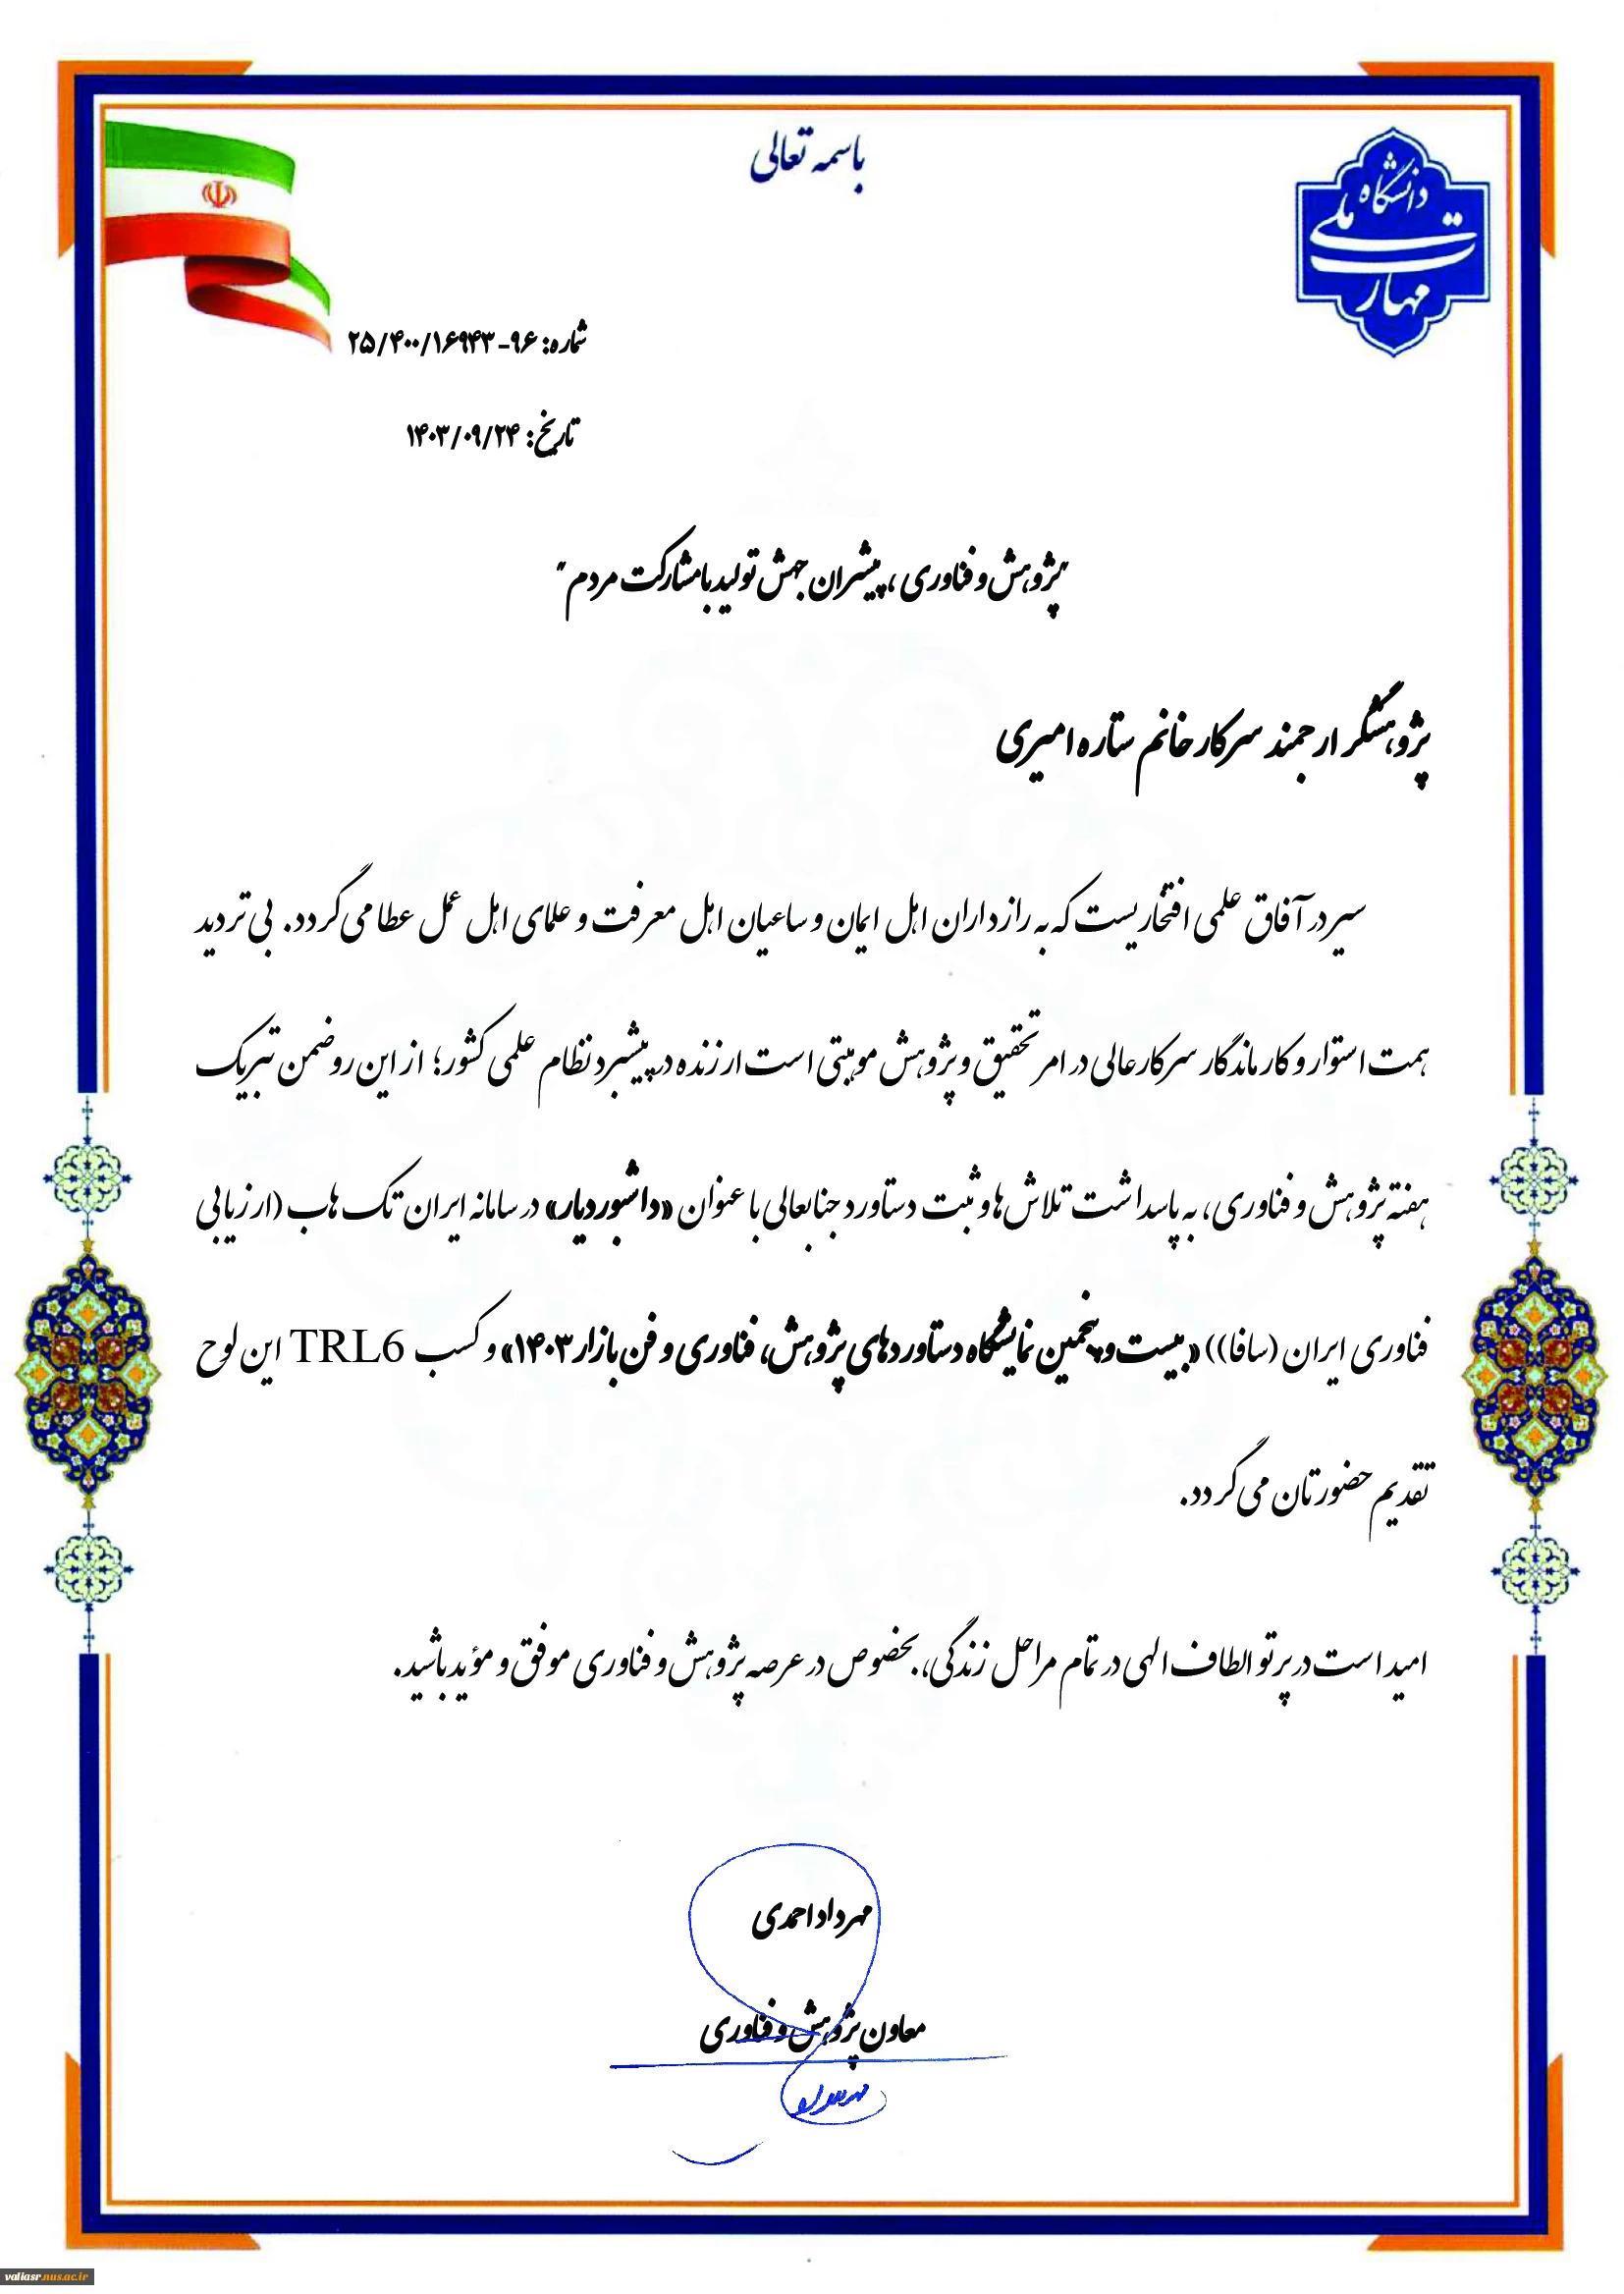 باسمه تعالی
دانشگاه
ملی
مهارت
شماره: ۹۶-۲۵/۴۰۰/۱۶۹۴۳
تاریخ: ۱۴۰۳/۰۹/۲۴
"پژوهش و فناوری، پیشران جهش تولید با مشارکت مردم"
پژوهشگر ارجمند سرکار خانم ستاره امیری
سیر در آفاق علمی افتخاریست که به رازداران اهل ایمان و ساعیان اهل معرفت و علمای اهل عمل عطا می گردد. بی تردید
همت استوار و کار ماندگار سرکارعالی در امر تحقیق و پژوهش موهبتی است ارزنده در پیشبرد نظام علمی کشور؛ از این رو ضمن تبریک
هفته پژوهش و فناوری، به پاسداشت تلاش ها و ثبت دستاورد جنابعالی با عنوان «داشبوردیار» در سامانه ایران تک هاب (ارزیابی
فناوری ایران (سافا)) «بیست و پنجمین نمایشگاه دستاوردهای پژوهش، فناوری و فن بازار ۱۴۰۳» و کسب TRL6 این لوح
تقدیم حضورتان می گردد.
امید است در پرتو الطاف الهی در تمام مراحل زندگی، بخصوص در عرصه پژوهش و فناوری موفق و مؤید باشید.
مهرداد احمدی
معاون پژوهش و فناوری
valiasr.nus.ac.ir